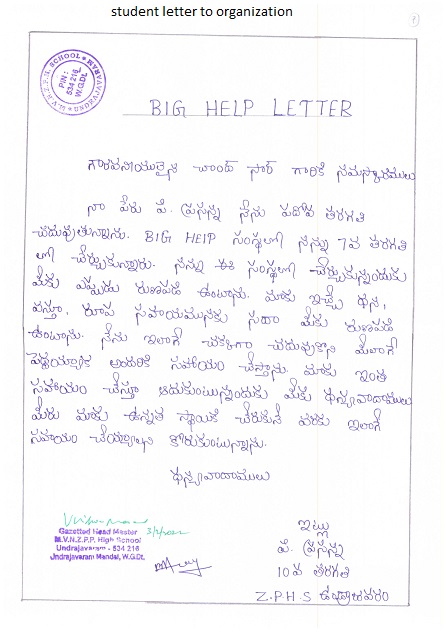 student letter to organization
M.V.N.Z.P.H. SCHOOL
UNDRAJAVARAM
PIN:
534 216
W.G.DL
BIG HELP LETTER
గౌరవనీయులైన చాంద్ సార్ గారికి నమస్కారములు
నా పేరు పి. ప్రసన్న నేను పదోవ తరగతి
చదువుతున్నాను. BIG HElP సంస్థలో నన్ను 7వ తరగతి
లో చేర్చుకున్నారు. నన్ను ఈ సంస్థలో చేర్చుకున్నందుకు
మీకు ఎప్పుడు రుణపడి ఉంటాను. మాకు ఇచ్చే ధన,
వస్తూ, రూప సహాయమునకు సదా మీకు రుణపడి
ఉంటాను. నేను ఇలాగే చక్కగా చదువుకొని మీలాగే
పెద్దయ్యాక అందరికి సహాయం చేస్తాను. మాకు ఇంత
సహాయం చేస్తూ ఆదుకుంటున్నందుకు మీకు ధన్యవాదాములు
మీరు మాకు ఉన్నత స్థాయికి చేరుకునే వరకు ఇలాగే
సహాయం చేయాలని కోరుకుంటున్నాను.
ధన్యవాదాములు
ఇట్లు
పి. ప్రసన్న
10వ తరగతి
Z.P.H.S ఉండ్రాజవరం
Gazetted Head Master
M.V.N.Z.P.P. High School
Undrajavaram - 534 216
Undrajavaram Mandal, W.G.Dt.